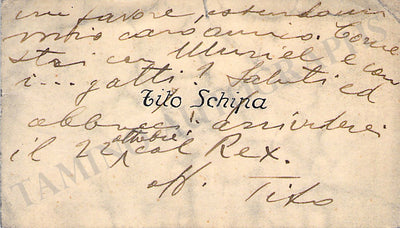 mi favore, essendo un
vostro caro amico. Come
stai con Muriel e con
i... gatti? Saluti ed
Tito Schipa
abbracci! arrivederci
il 22 ottobre, col Rex.
aff. Tito
TAMINO AUTOGRAPHS